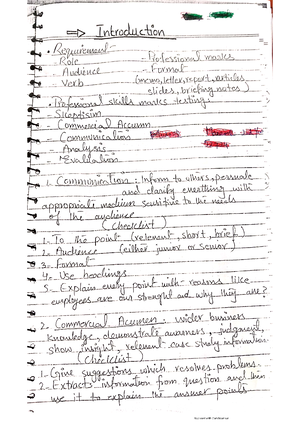 ⇒ Introduction
• Requirement -
- Role - Professional marks
- Audience - Format
- Verb (memo, letter, report, articles,
slides, briefing notes)
• Professional skills marks testing:
- Scepticism
- Commercial Acumen
- Communication
- Analysis
- Evaluation
1- Communication: Inform to others, persuade
and clarify everything with
appropriate medium sensitive to the needs
of the audience
(Checklist)
1- To the point (relevent, short, brief)
2- Audience (either junior or senior)
3- Format
4- Use headings
5- Explain every point with reasons like
employees are our strenght and why they are?
2. Commercial Acumen: wider business
knowledge, demonstrate awareness, judgment,
show insight, relevent case study information
(Checklist)
1- Give suggestions which resolves problems.
2- Extracts information from question and then
use it to explain the answer points